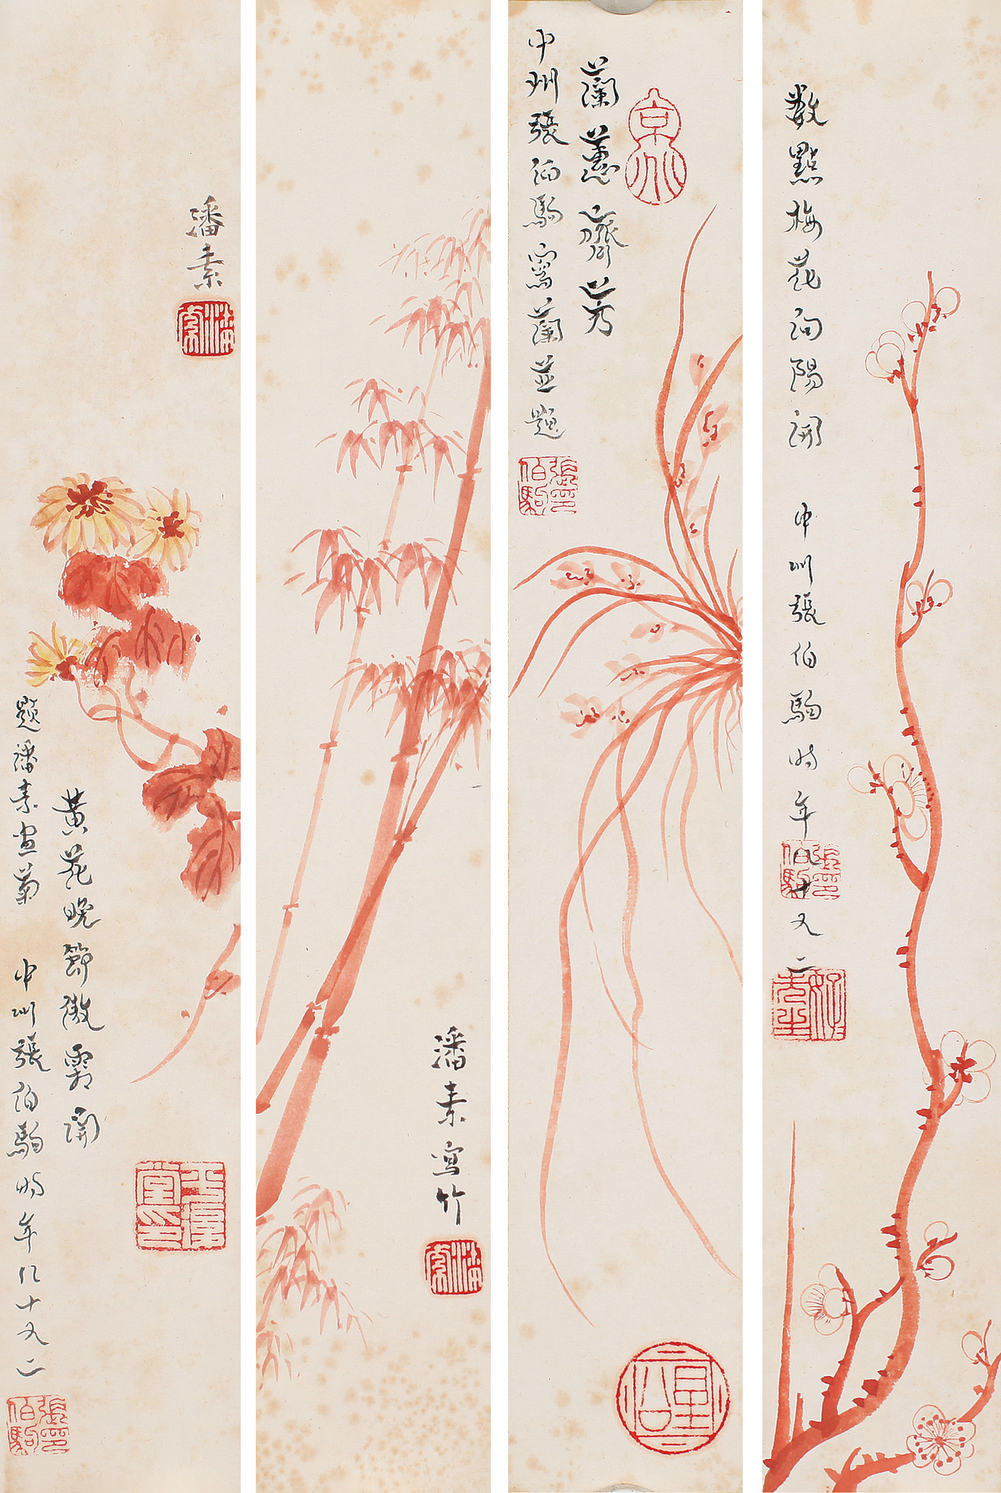 数點梅花向陽開 中州張伯駒時年八十又二
張伯駒印
好好先生
蘭蕙齊芳
中州張伯駒寫蘭並題
張伯駒印
京兆
潘素写竹
潘素
潘素
潘素
黃花晚節傲霜開
題潘素畫菊 中州張伯駒時年八十又二
張伯駒印
平復堂印